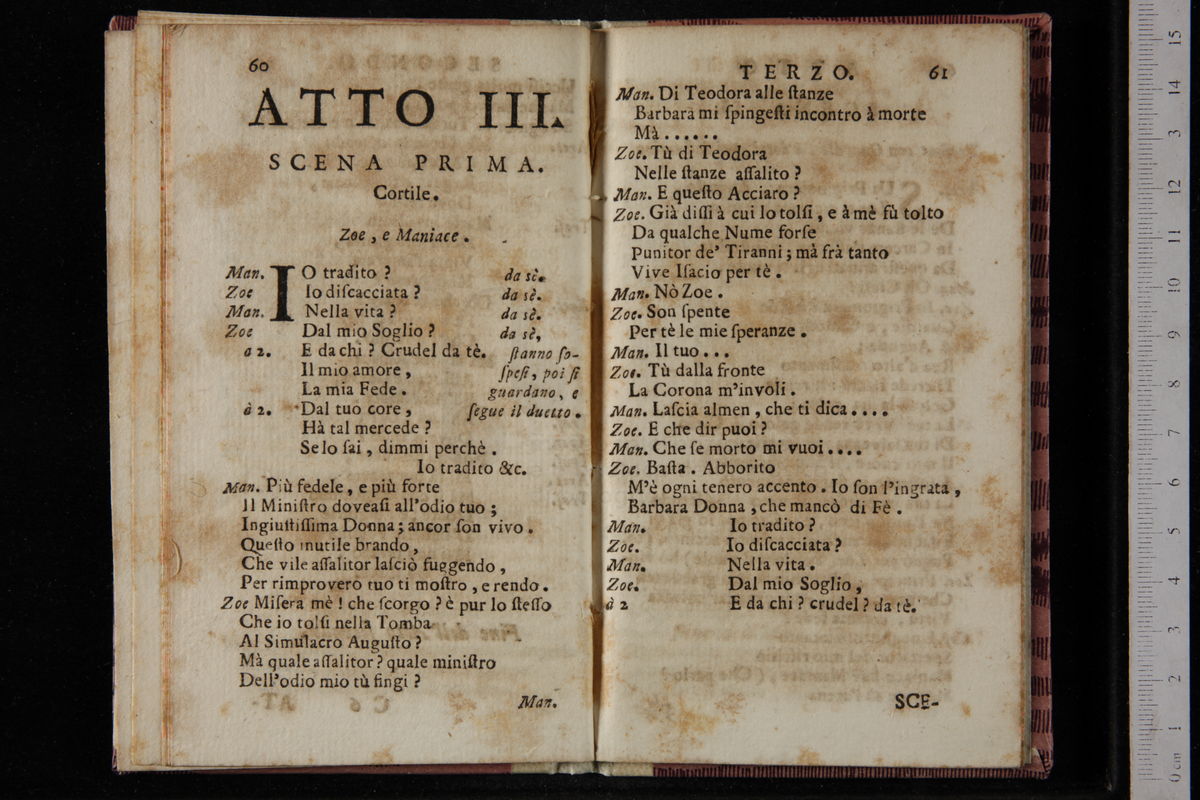 60
ATTO III.
SCENA PRIMA.
Cortile.
Zoe, e Maniace.
Man. IO tradito? da sè.
Zoe Io diſcacciata? da sè.
Man. Nella vita? da sè.
Zoe Dal mio Soglio? da sè,
a 2. E da chi? Crudel da tè. ſtanno ſo-
Il mio amore, ſpeſi, poi ſi
La mia Fede. guardano, e
à 2. Dal tuo core, ſegue il duetto.
Hà tal mercede?
Se lo ſai, dimmi perchè.
Io tradito &c.
Man. Più fedele, e più forte
Il Miniſtro doveaſi all'odio tuo;
Ingiuſtiſſima Donna; ancor ſon vivo.
Queſto inutile brando,
Che vile aſſalitor laſciò fuggendo,
Per rimprovero tuo ti moſtro, e rendo.
Zoe Miſera mè! che ſcorgo? è pur lo ſteſſo
Che io tolſi nella Tomba
Al Simulacro Auguſto?
Mà quale aſſalitor? quale miniſtro
Dell'odio mio tù fingi?
Man.
TERZO. 61
Man. Di Teodora alle ſtanze
Barbara mi ſpingeſti incontro à morte
Mà......
Zoe. Tù di Teodora
Nelle ſtanze aſſalito?
Man. E queſto Acciaro?
Zoe. Già diſſi à cui lo tolſi, e à mè fù tolto
Da qualche Nume forſe
Punitor de' Tiranni; mà frà tanto
Vive Iſacio per tè.
Man. Nò Zoe.
Zoe. Son ſpente
Per tè le mie ſperanze.
Man. Il tuo...
Zoe. Tù dalla fronte
La Corona m'involi.
Man. Laſcia almen, che ti dica....
Zoe. E che dir puoi?
Man. Che ſe morto mi vuoi....
Zoe. Baſta. Abborito
M'è ogni tenero accento. Io ſon l'ingrata,
Barbara Donna, che mancò di Fè.
Man. Io tradito?
Zoe. Io diſcacciata?
Man. Nella vita.
Zoe. Dal mio Soglio,
à 2 E da chi? crudel? da tè.
SCE-
0 cm 1 2 3 4 5 6 7 8 9 10 11 12 13 14 15